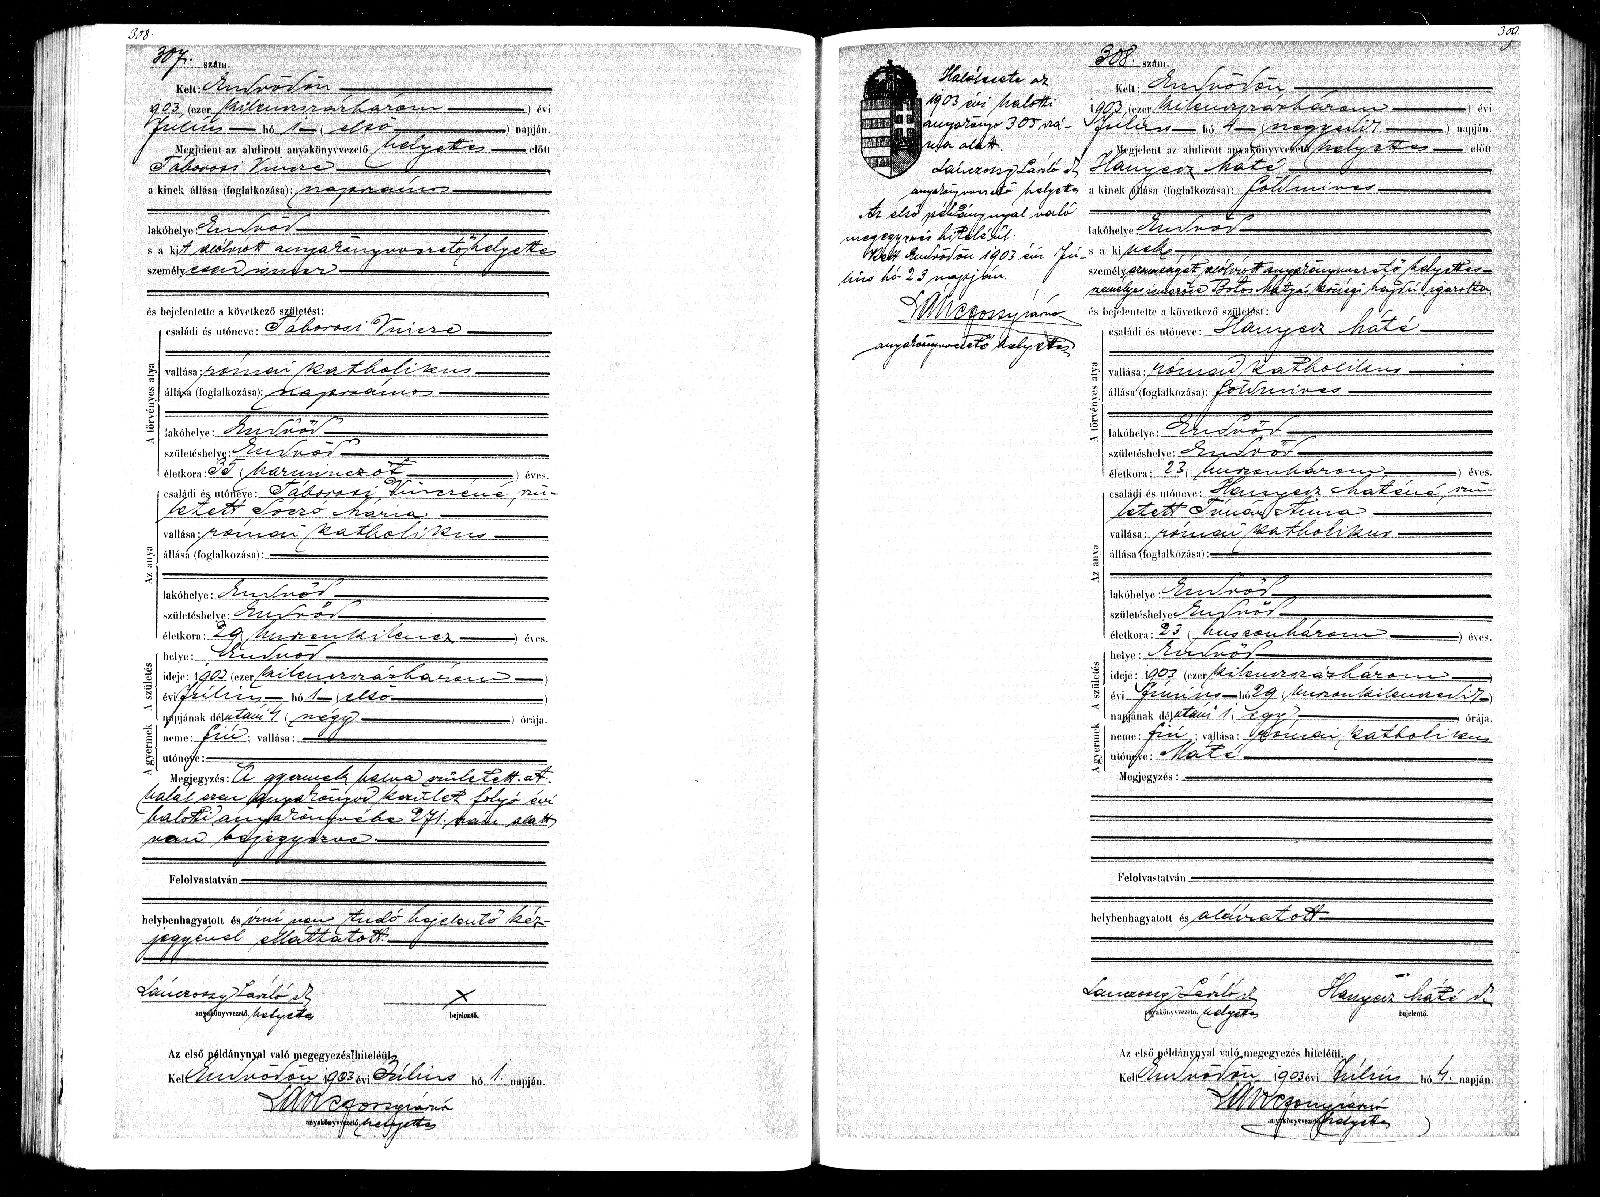 308.
307. szám.
Kelt: Endrődön
1903 (ezer kilenczszázhárom ) évi
Július hó 1 ( első ) napján.
Megjelent az alulirott anyakönyvvezető helyettes előtt
Táborosi Vincze
a kinek állása (foglalkozása): napszámos
lakóhelye Endrőd
s a kit alólirott anyakönyvvezető helyettes
személyesen ismer
és bejelentette a következő születést:
A törvényes atya
családi és utóneve: Táborosi Vincze
vallása: római katholikus
állása (foglalkozása): napszámos
lakóhelye: Endrőd
születéshelye: Endrőd
életkora: 35 ( harminczöt ) éves.
Az anya
családi és utóneve: Táborosi Vinczéné, szü-
letett Mária
vallása: római katholikus
állása (foglalkozása):
lakóhelye: Endrőd
születéshelye: Endrőd
életkora: 29 ( huszonkilencz ) éves.
A születés
helye: Endrőd
ideje: 1903 (ezer kilenczszázhárom )
évi Július hó 1 ( első )
napjának délutáni 4 ( négy ) órája.
A gyermek
neme: fiú ; vallása:
utóneve:
Megjegyzés: A gyermek halva született. A
halál ezen anyakönyvi kerület folyó évi
haloti anyakönyvébe 271. szám alatt
van bejegyezve.
Felolvastatván
helybenhagyatott és írni nem tudó bejelentő kéz-
jegyével elláttatott.
Lánczossy László sk
anyakönyvvezető. helyettes
X
bejelentő.
Az első példánynyal való megegyezés hiteléül.
Kelt Endrődön 1903 évi Július hó 1. napján.
Lánczossy László
anyakönyvvezető. helyettes
309.
Halálesete az
1903 évi halotti
anyakönyv 305 szá-
ma alatt.
Lánczossy László sk
anyakönyvvezető helyettes
Az első példánynyal való
megegyezés hiteléül.
Kelt Endrődön 1903 évi Jú-
lius hó 23 napján.
Lánczossy László
anyakönyvvezető helyettes
308. szám.
Kelt: Endrődön
1903 (ezer kilenczszázhárom ) évi
Július hó 4 ( negyedik ) napján.
Megjelent az alulirott anyakönyvvezető helyettes előtt
Hanyecz Máté
a kinek állása (foglalkozása): földmives
lakóhelye Endrőd
s a ki nek
személyazonosságát, alólirott anyakönyvvezető helyettes
személyes ismerőse Botos Mátyás községi hajdú igazolta,
és bejelentette a következő születést:
A törvényes atya
családi és utóneve: Hanyecz Máté
vallása: római katholikus
állása (foglalkozása): földmives
lakóhelye: Endrőd
születéshelye: Endrőd
életkora: 23 ( huszonhárom ) éves.
Az anya
családi és utóneve: Hanyecz Máténé, szü-
letett Anna
vallása: római katholikus
állása (foglalkozása):
lakóhelye: Endrőd
születéshelye: Endrőd
életkora: 23 ( huszonhárom ) éves.
A születés
helye: Endrőd
ideje: 1903 (ezer kilenczszázhárom )
évi Június hó 29 ( huszonkilenczedik )
napjának délutáni 1 ( egy ) órája.
A gyermek
neme: fiú ; vallása: római katholikus
utóneve: Máté
Megjegyzés:
Felolvastatván
helybenhagyatott és aláiratott
Lánczossy László sk
anyakönyvvezető. helyettes
Hanyecz Máté sk
bejelentő.
Az első példánynyal való megegyezés hiteléül.
Kelt Endrődön 1903 évi Július hó 4. napján
Lánczossy László
anyakönyvvezető helyettes